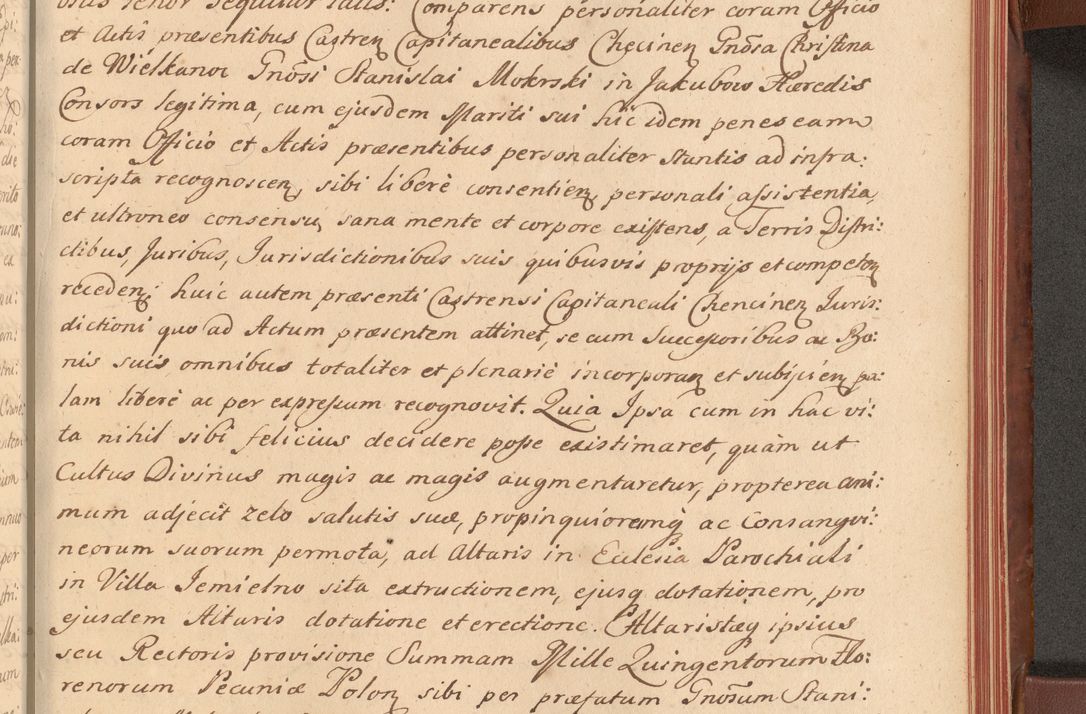 osus tenor sequitur talis: Comparens personaliter coram Officio
et Actis præsentibus Castren Capitanealibus Chęcinen Gnosa Christina
de Wielkanoc Gnosi Stanislai Mokrski in Jakubow Hæredis
Consors legitima, cum ejusdem Mariti sui hic idem penes eam
coram Officio et Actis præsentibus personaliter stantis ad infra:
scripta recognoscen, sibi liberè consentien, personali assistentia,
et ultroneo consensu, sana mente et corpore existens, a Terris Distri:
ctibus, Juribus, Jurisdictionibus suis quibusvis proprijs et competen
receden; huic autem præsenti Castrensi Capitaneali Chencinen Juris:
dictioni quo ad Actum præsentem attinet, se cum Successoribus ac Bo:
nis suis omnibus totaliter et plenariè incorporan et subijcien, pa:
lam liberè ac per expressum recognovit. Quia Ipsa cum in hac vi:
ta nihil sibi felicius decidere posse existimaret, quàm ut
Cultus Divinus magis ac magis augmentaretur, propterea ani:
mum adjecit zelo salutis suæ, propinquiorumq ac Consangvi:
neorum suorum permota, ad Altaris in Ecclesia Parochiali
in Villa Jemielno sita extructionem, ejusq dotationem, pro
ejusdem Altaris dotatione et erectione. Altaristæq ipsius
seu Rectoris provisione Summam Mille Quingentorum Flo:
renorum Pecuniæ Polon sibi per præfatum Gnosum Stani: